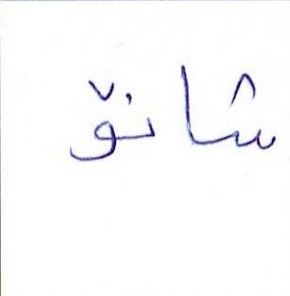 شانۆ